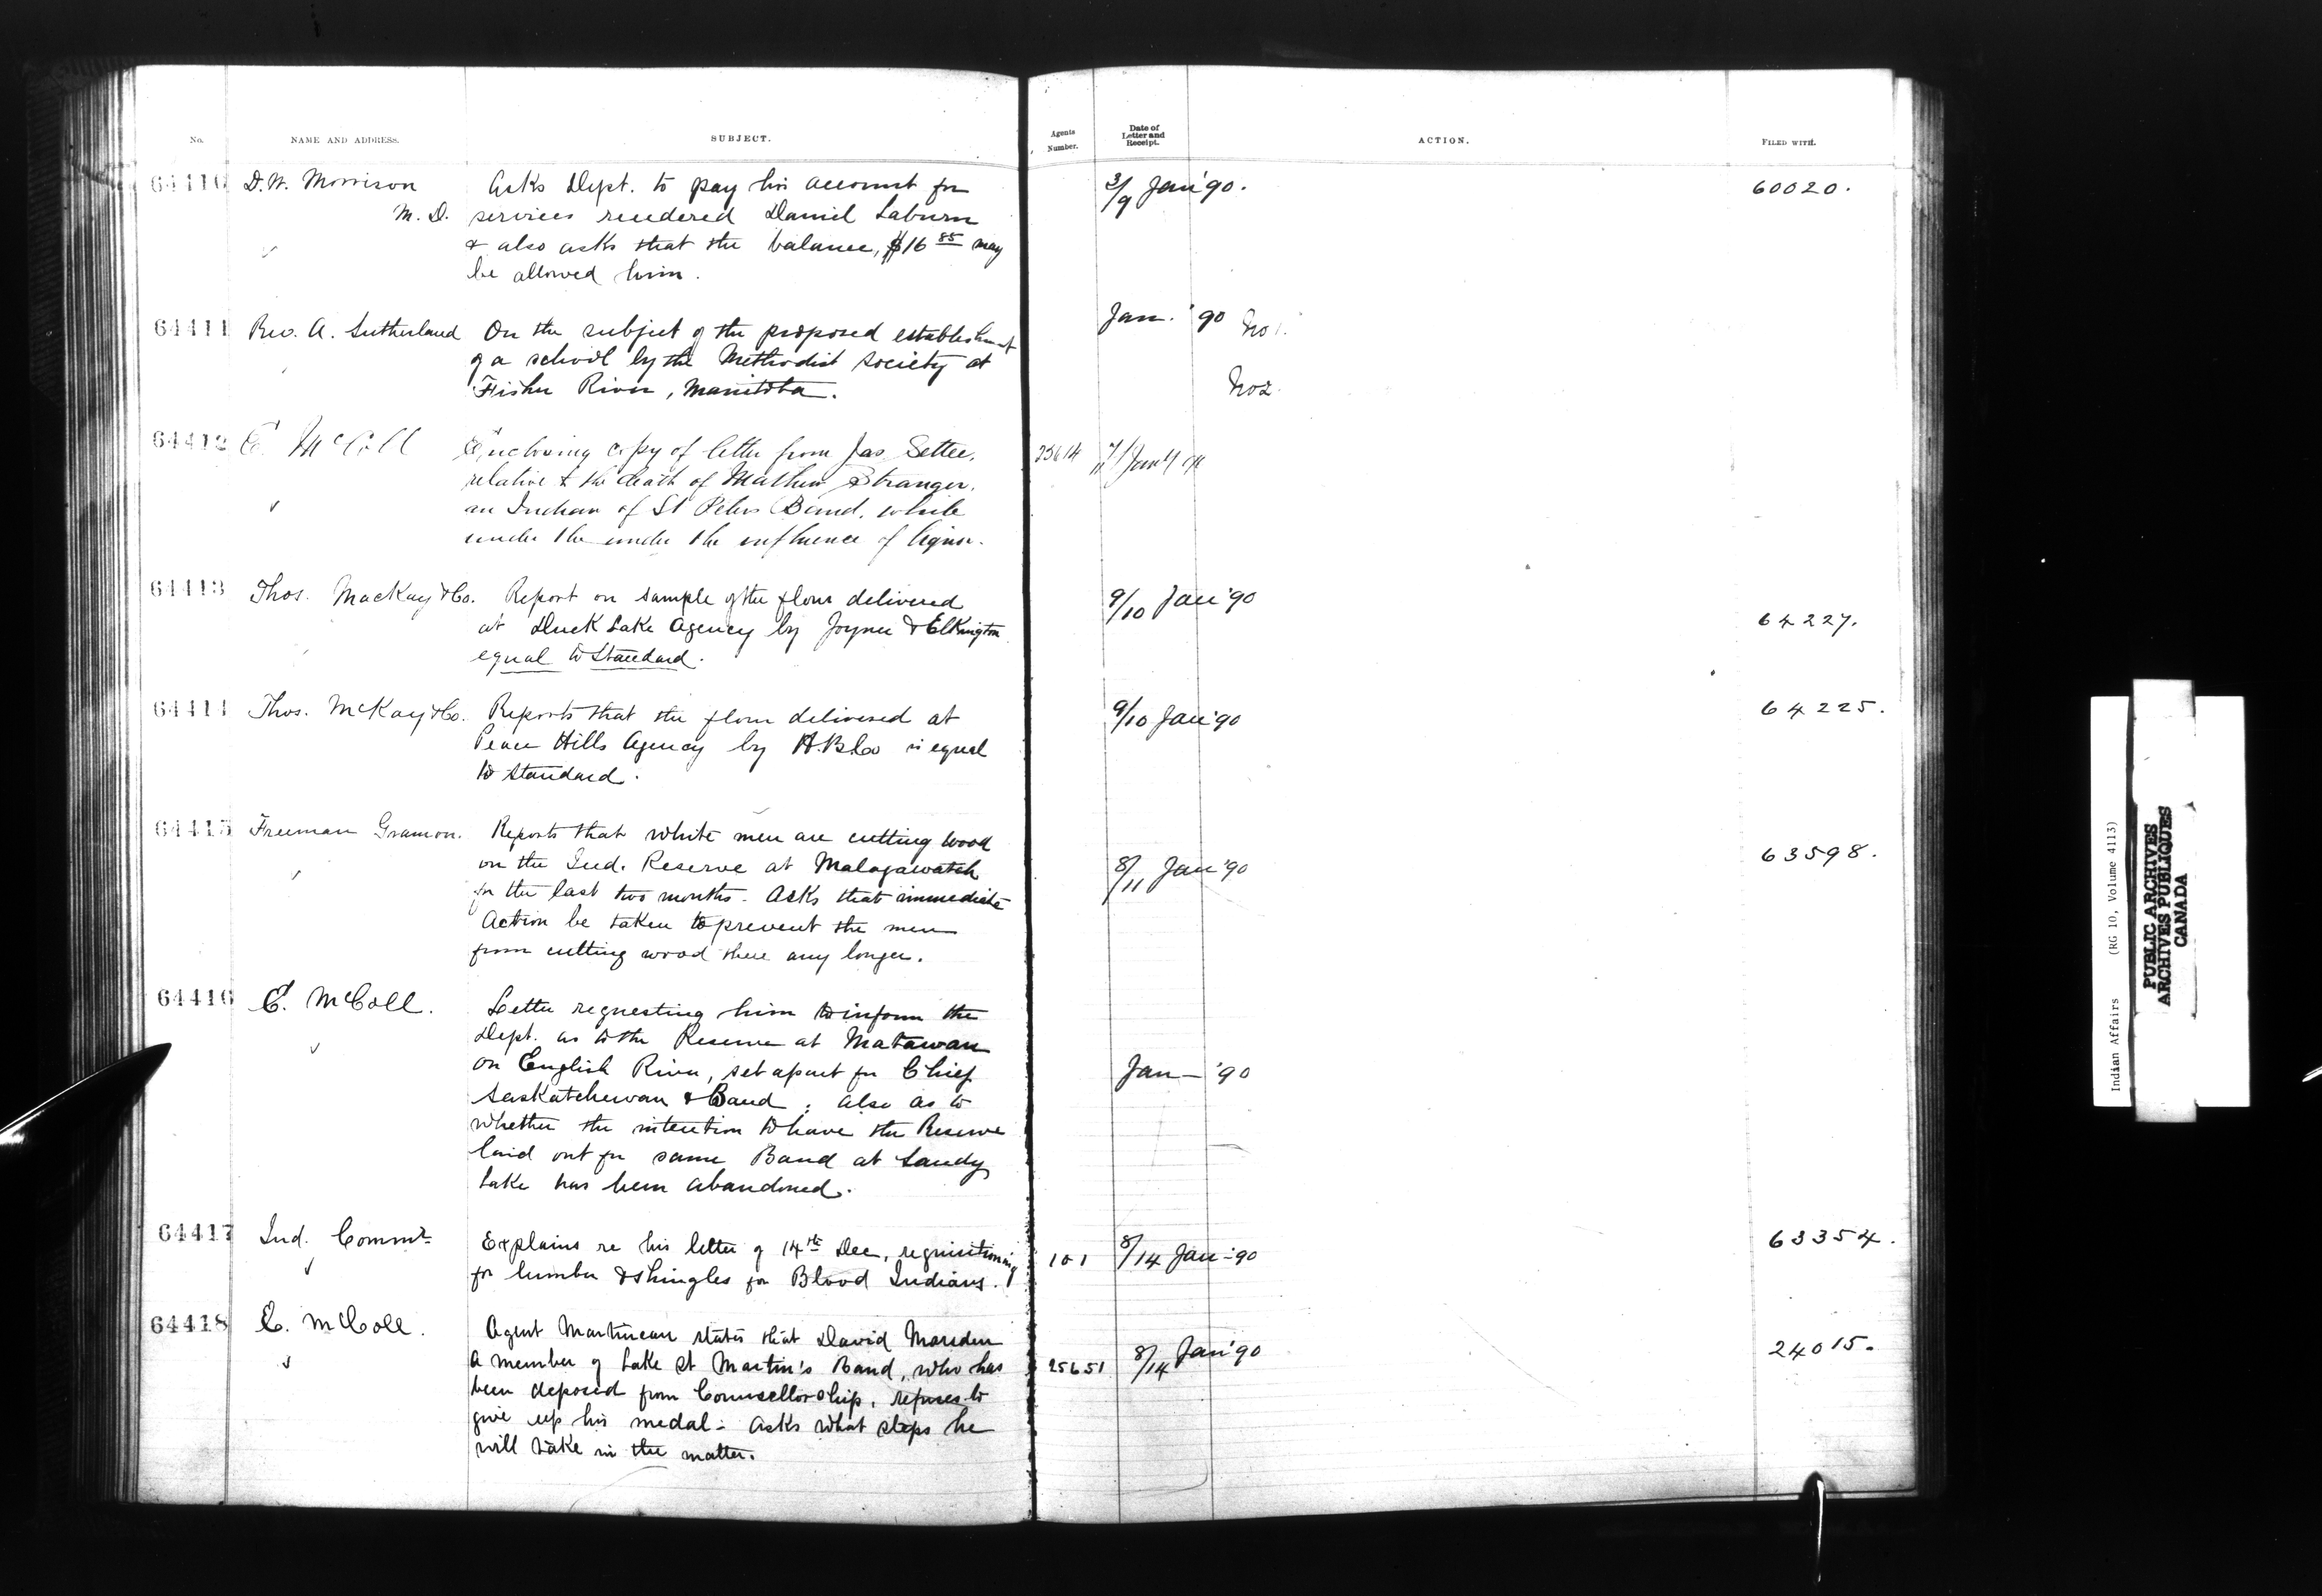 No. NAME AND ADDRESS. SUBJECT. Agents Number. Date of Letter and Receipt. ACTION. FILED WITH.
64410 D.W. Morrison Asks Dept. to pay his account for 3/9 Jan '90. 60020.
M.D. services rendered Daniel Laburn
& also asks that the balance, $16 85 may
be allowed him.
64411 Rev. A. Sutherland On the subject of the proposed establishment Jan. '90 No 1.
of a school by the Methodist Society at
Fisher River, Manitoba. No 2.
64412 E McColl Enclosing copy of letter from Jas Settee, 25614 7/11 Jany
relative to the death of Mathew Stranger,
an Indian of St Peters Band, while
under the under the influence of liquor.
64413 Thos. MacKay & Co. Report on sample of the flour delivered 9/10 Jan '90
at Duck Lake Agency by Joyner & Elkington 64227.
equal to Standard.
64414 Thos. McKay & Co. Reports that the flour delivered at 9/10 Jan '90 64225.
Peace Hills Agency by H.B.Co is equal
to Standard.
64415 Freeman Gramon. Reports that white men are cutting wood 63598.
on the Ind. Reserve at Malagawatch 8/11 Jan '90
for the last two months. Asks that immediate
Action be taken to prevent the men
from cutting wood there any longer.
64416 E. McColl. Letter requesting him to inform the
Dept. as to the Reserve at Matawan
on English River, set apart for Chief Jan – '90
Saskatchewan & Band; also as to
whether the intention to have the Reserve
laid out for same Band at Sandy
Lake has been abandoned.
64417 Ind. Commr. Explains re his letter of 14th Dec, requisitioning 101 8/14 Jan – 90 63354.
for lumber & shingles for Blood Indians.
64418 E. McColl. Agent Martineau states that David Marsden 24015.
a member of Lake St Martin's Band, who has 25651 8/14 Jan '90
been deposed from Counsellorship, refuses to
give up his medal – asks what steps he
will take in the matter.
Indian Affairs (RG 10, Volume 4113)
PUBLIC ARCHIVES
ARCHIVES PUBLIQUES
CANADA